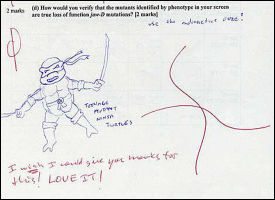 2 marks
(d) How would you verify that the mutants identified by phenotype in your screen
are true loss of function jaw-D mutations? [2 marks]
use the radioactive ooze.
TEENAGE
MUTANT
NINJA
TURTLES
I wish I could give you marks for
this! LOVE IT!